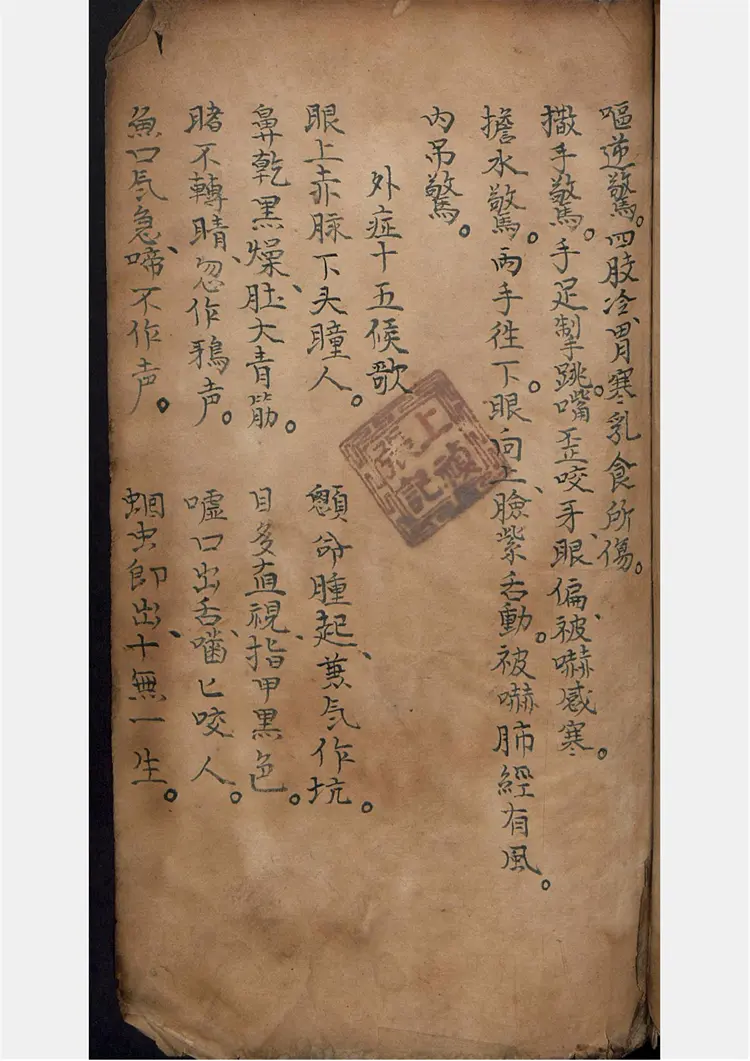 嘔逆驚。四肢冷、胃寒乳食所傷。
撒手驚。手足掣跳。嘴歪咬牙、眼偏、被嚇感寒。
擔水驚。両手徃下。眼向上、臉紫舌動。被嚇肺經有風。
内吊驚。
外症十五候歌
眼上赤脉下头瞳人。 顖命腫起、兼气作坑。
鼻乾黒燥、肚大青筋。 目多直視、指甲黒色。
睹不轉睛、忽作鴉声。 嘘口出舌、嚙匕咬人。
魚口气急、啼不作声。 蛔虫即出、十無一生。
上禎
張記